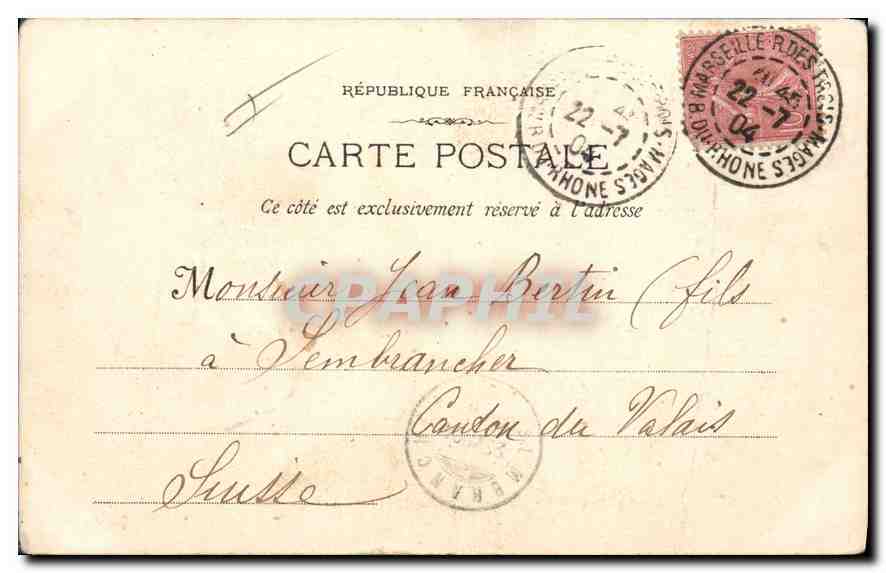 RÉPUBLIQUE FRANÇAISE
CARTE POSTALE
Ce côté est exclusivement réservé à l'adresse
MARSEILLE R. DES TROIS-MAGES
22 -7
04
B DU RHONE
MAGES
22 -7
04
RHONE
10
CPAPHIL
Monsieur Jean Bertin (fils
à Sembrancher
Canton du Valais
Suisse